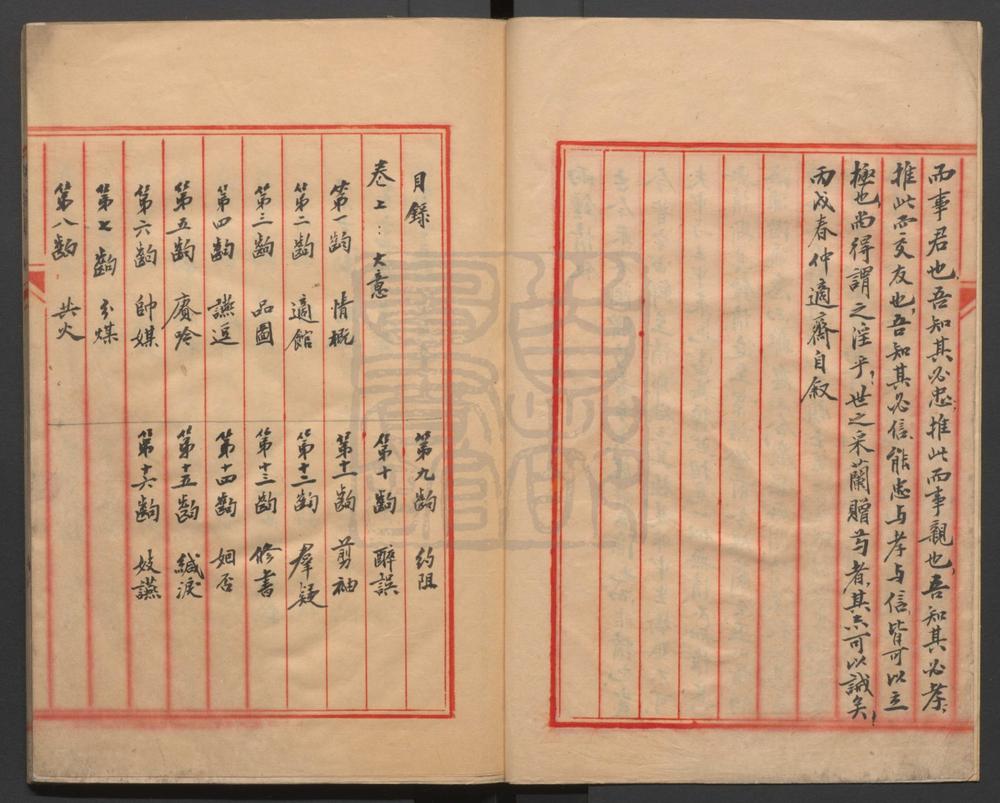 而事君也，吾知其必忠，推此而事親也，吾知其必孝，
推此而交友也，吾知其必信，能忠与孝与信，皆可以立
極也，尚得謂之淫乎！世之采蘭贈芍者，其亦可以誡矣！
丙戌春仲適齋自叙
目錄
卷上：大意
第一齣 情概
第二齣 適館
第三齣 品圖
第四齣 讌逗
第五齣 賡吟
第六齣 帥媒
第七齣 分煤
第八齣 共火
第九齣 約阻
第十齣 醉誤
第十一齣 剪袖
第十二齣 羣疑
第十三齣 修書
第十四齣 姻否
第十五齣 緘淚
第十六齣 妓讌